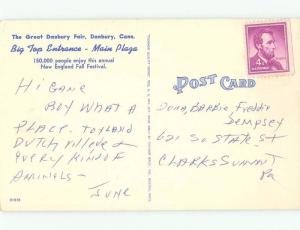 The Great Danbury Fair, Danbury, Conn.
Big Top Entrance - Main Plaza
150,000 people enjoy this annual
New England Fall Festival.
POST CARD
4¢
Hi Gang
Boy What A
Place. Toyland
Dutch Village +
Every Kind of
Animals -
June
John, Barbie, Freddie
Dempsey
620 So State St
Clarks Summit
Pa